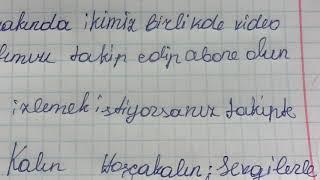 akında ikimiz birlikde video
takip edip abone olun
izlemek istiyorsanız takipte
Kalın Hoşcakalın; Sevgilerle